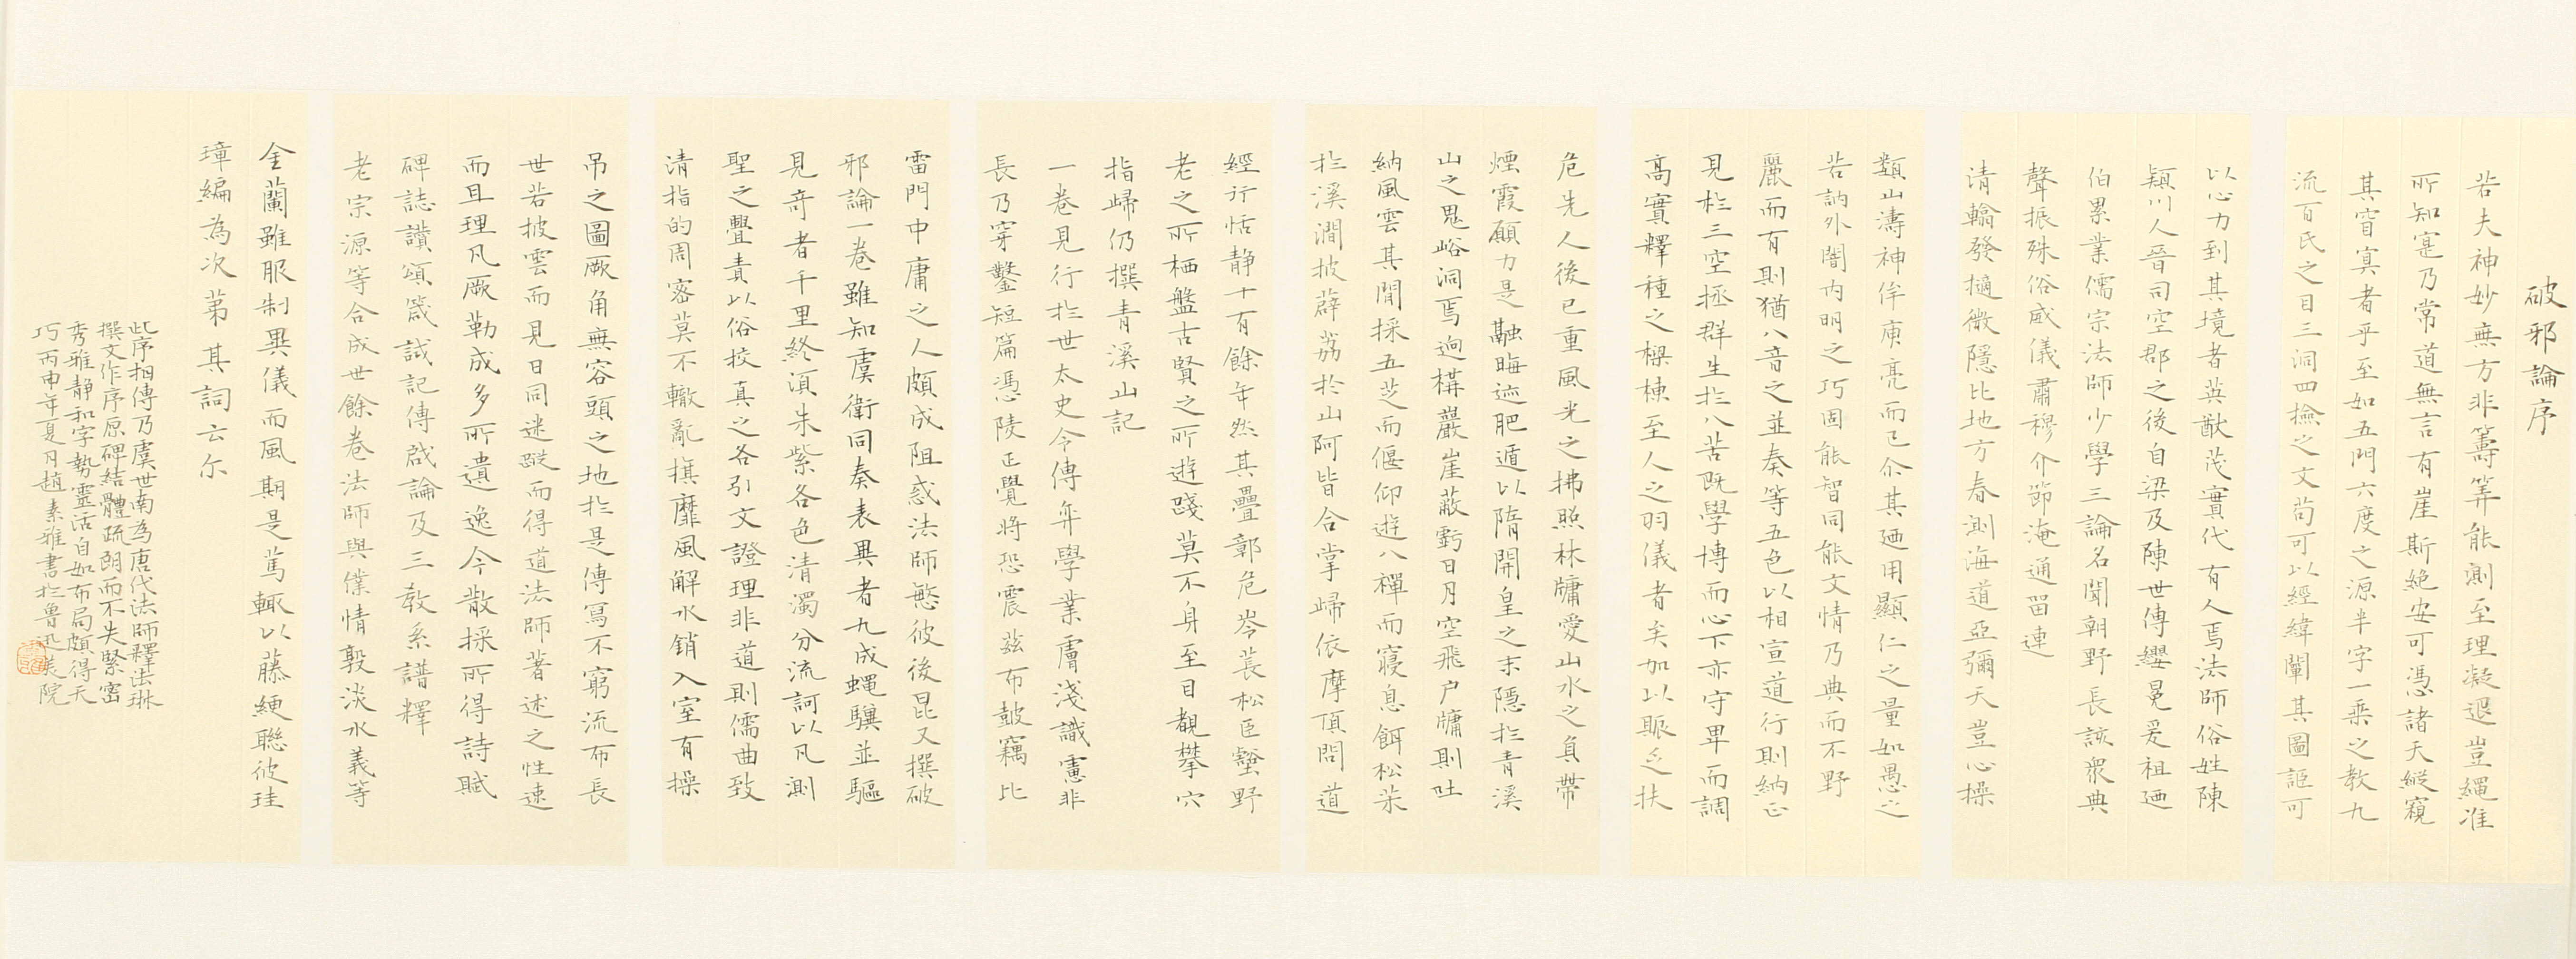 破邪論序
若夫神妙無方非籌筭能測至理凝邈豈繩准
所知寔乃常道無言有崖斯絶安可憑諸天縱窺
其窅冥者乎至如五門六度之源半字一乘之教九
流百氏之目三洞四檢之文苟可以經緯闡其圖詎可
以心力到其境者英猷茂實代有人焉法師俗姓陳
潁川人晉司空郡之後自梁及陳世傳纓冕爰祖迺
伯累業儒宗法師少學三論名聞朝野長該衆典
聲振殊俗威儀肅穆介節淹通留連
清翰發擿微隱比地方春測海道亞彌天豈心操
類山濤神侔庾亮而已尒其迺用顯仁之量如愚之
若訥外闇内明之巧固能智同能文情乃典而不野
麗而有則猶八音之並奏等五色以相宣道行則納正
見於三空拯群生於八苦既學博而心下亦守卑而調
高實釋種之樑棟至人之羽儀者矣加以賑乏扶
危先人後已重風光之拂照林牖愛山水之負帶
煙霞願力是融晦迹肥遁以隋開皇之末隱於青溪
山之鬼峪洞焉迥構巖崖蔽虧日月空飛户牖則吐
納風雲其閒採五芝而偃仰遊八禪而寢息餌松朮
於溪澗披薜荔於山阿皆合掌歸依摩頂問道
經行恬静十有餘年然其疊鄣危岑萇松巨壑野
老之所栖盤古賢之所遊踐莫不身至目覩攀穴
指歸仍撰青溪山記
一卷見行於世太史令傅弈學業膚淺識慮非
長乃穿鑿短篇憑陵正覺將恐震茲布皷竊比
雷門中庸之人頗成阻惑法師慜彼後昆又撰破
邪論一卷雖知虞衛同奏表異者九成蠅驥並驅
見奇者千里終須朱紫各色清濁分流訶以凡測
聖之舋責以俗挍真之咎引文證理非道則儒曲致
清指的周密莫不轍亂旗靡風解水銷入室有操
吊之圖厥角無容頭之地於是傳寫不窮流布長
世若披雲而見日同迷蹤而得道法師著述之性速
而且理凡厥勒成多所遺逸今散採所得詩賦
碑誌讚頌箴誡記傳啟論及三教系譜釋
老宗源等合成卅餘卷法師與僕情敦淡水義等
金蘭雖服制異儀而風期是篤輒以藤綆聯彼珪
璋編為次第其詞云尒
此序相傳乃虞世南為唐代法師釋法琳
撰文作序原碑結體疏朗而不失緊密
秀雅静和字勢靈活自如布局頗得天
巧丙申年夏月趙素雅書於魯迅美院